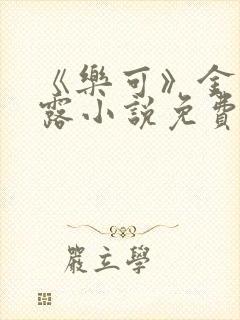 《樂可》金
露小說免費
嚴立學